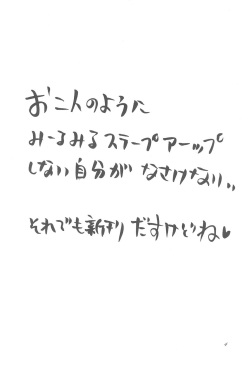 お二人のように
みーるみるステープアーップ
しない自分が なさけない、、
それでも新刊 だすけどね♥